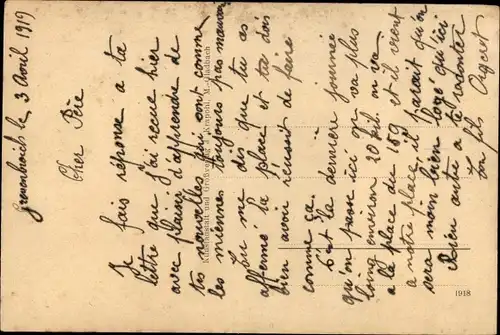 Grevenbroich le, 3 Avril 1919
Cher Père
Je fais réponse a ta
lettre que j'ai recue hier
avec plaisir d'apprendre de
tes nouvelles qui sont comme
les miennes toujours pas mauvai
Tu me dis que tu as
affermé la place et tu dois
bien avoir réussit de faire
comme ça.
C'est la dernière journée
qu'on passe ici on va plus
loing environ 20 kil. on va
a la place du 159 et il vient
a notre place, il parait qu'on
sera moins bien logé qu'ici
Rien autre a te raconter
Ton fils
Kunstanstalt und Großverlag Krapohl, M.-Gladbach
1918